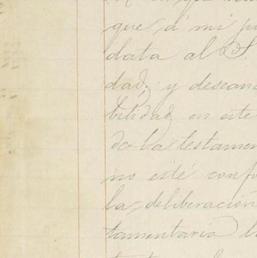 que á mi pa
data al S.
dad, y desean
bilidad en este
do la testamen
no esté conf
la deliberacion
tamentaria la